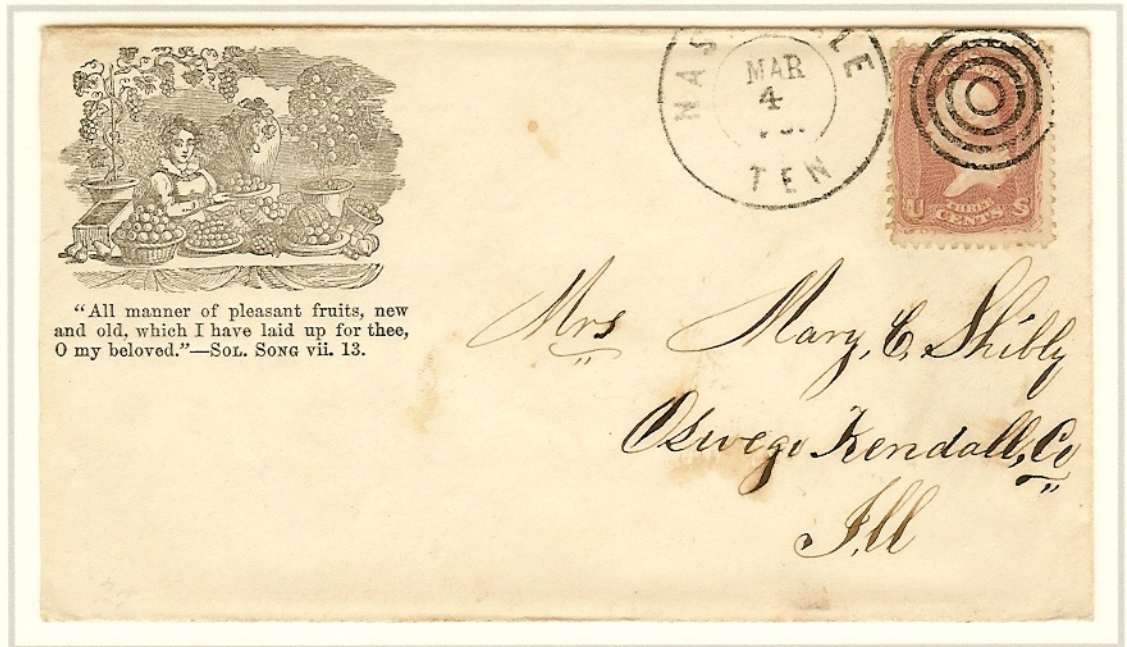 "All manner of pleasant fruits, new
and old, which I have laid up for thee,
O my beloved."—SOL. SONG vii. 13.
MAR
4
TEN
U THREE S
CENTS
Mrs Mary, C, Shibly
Oswego Kendall, Co
Ill